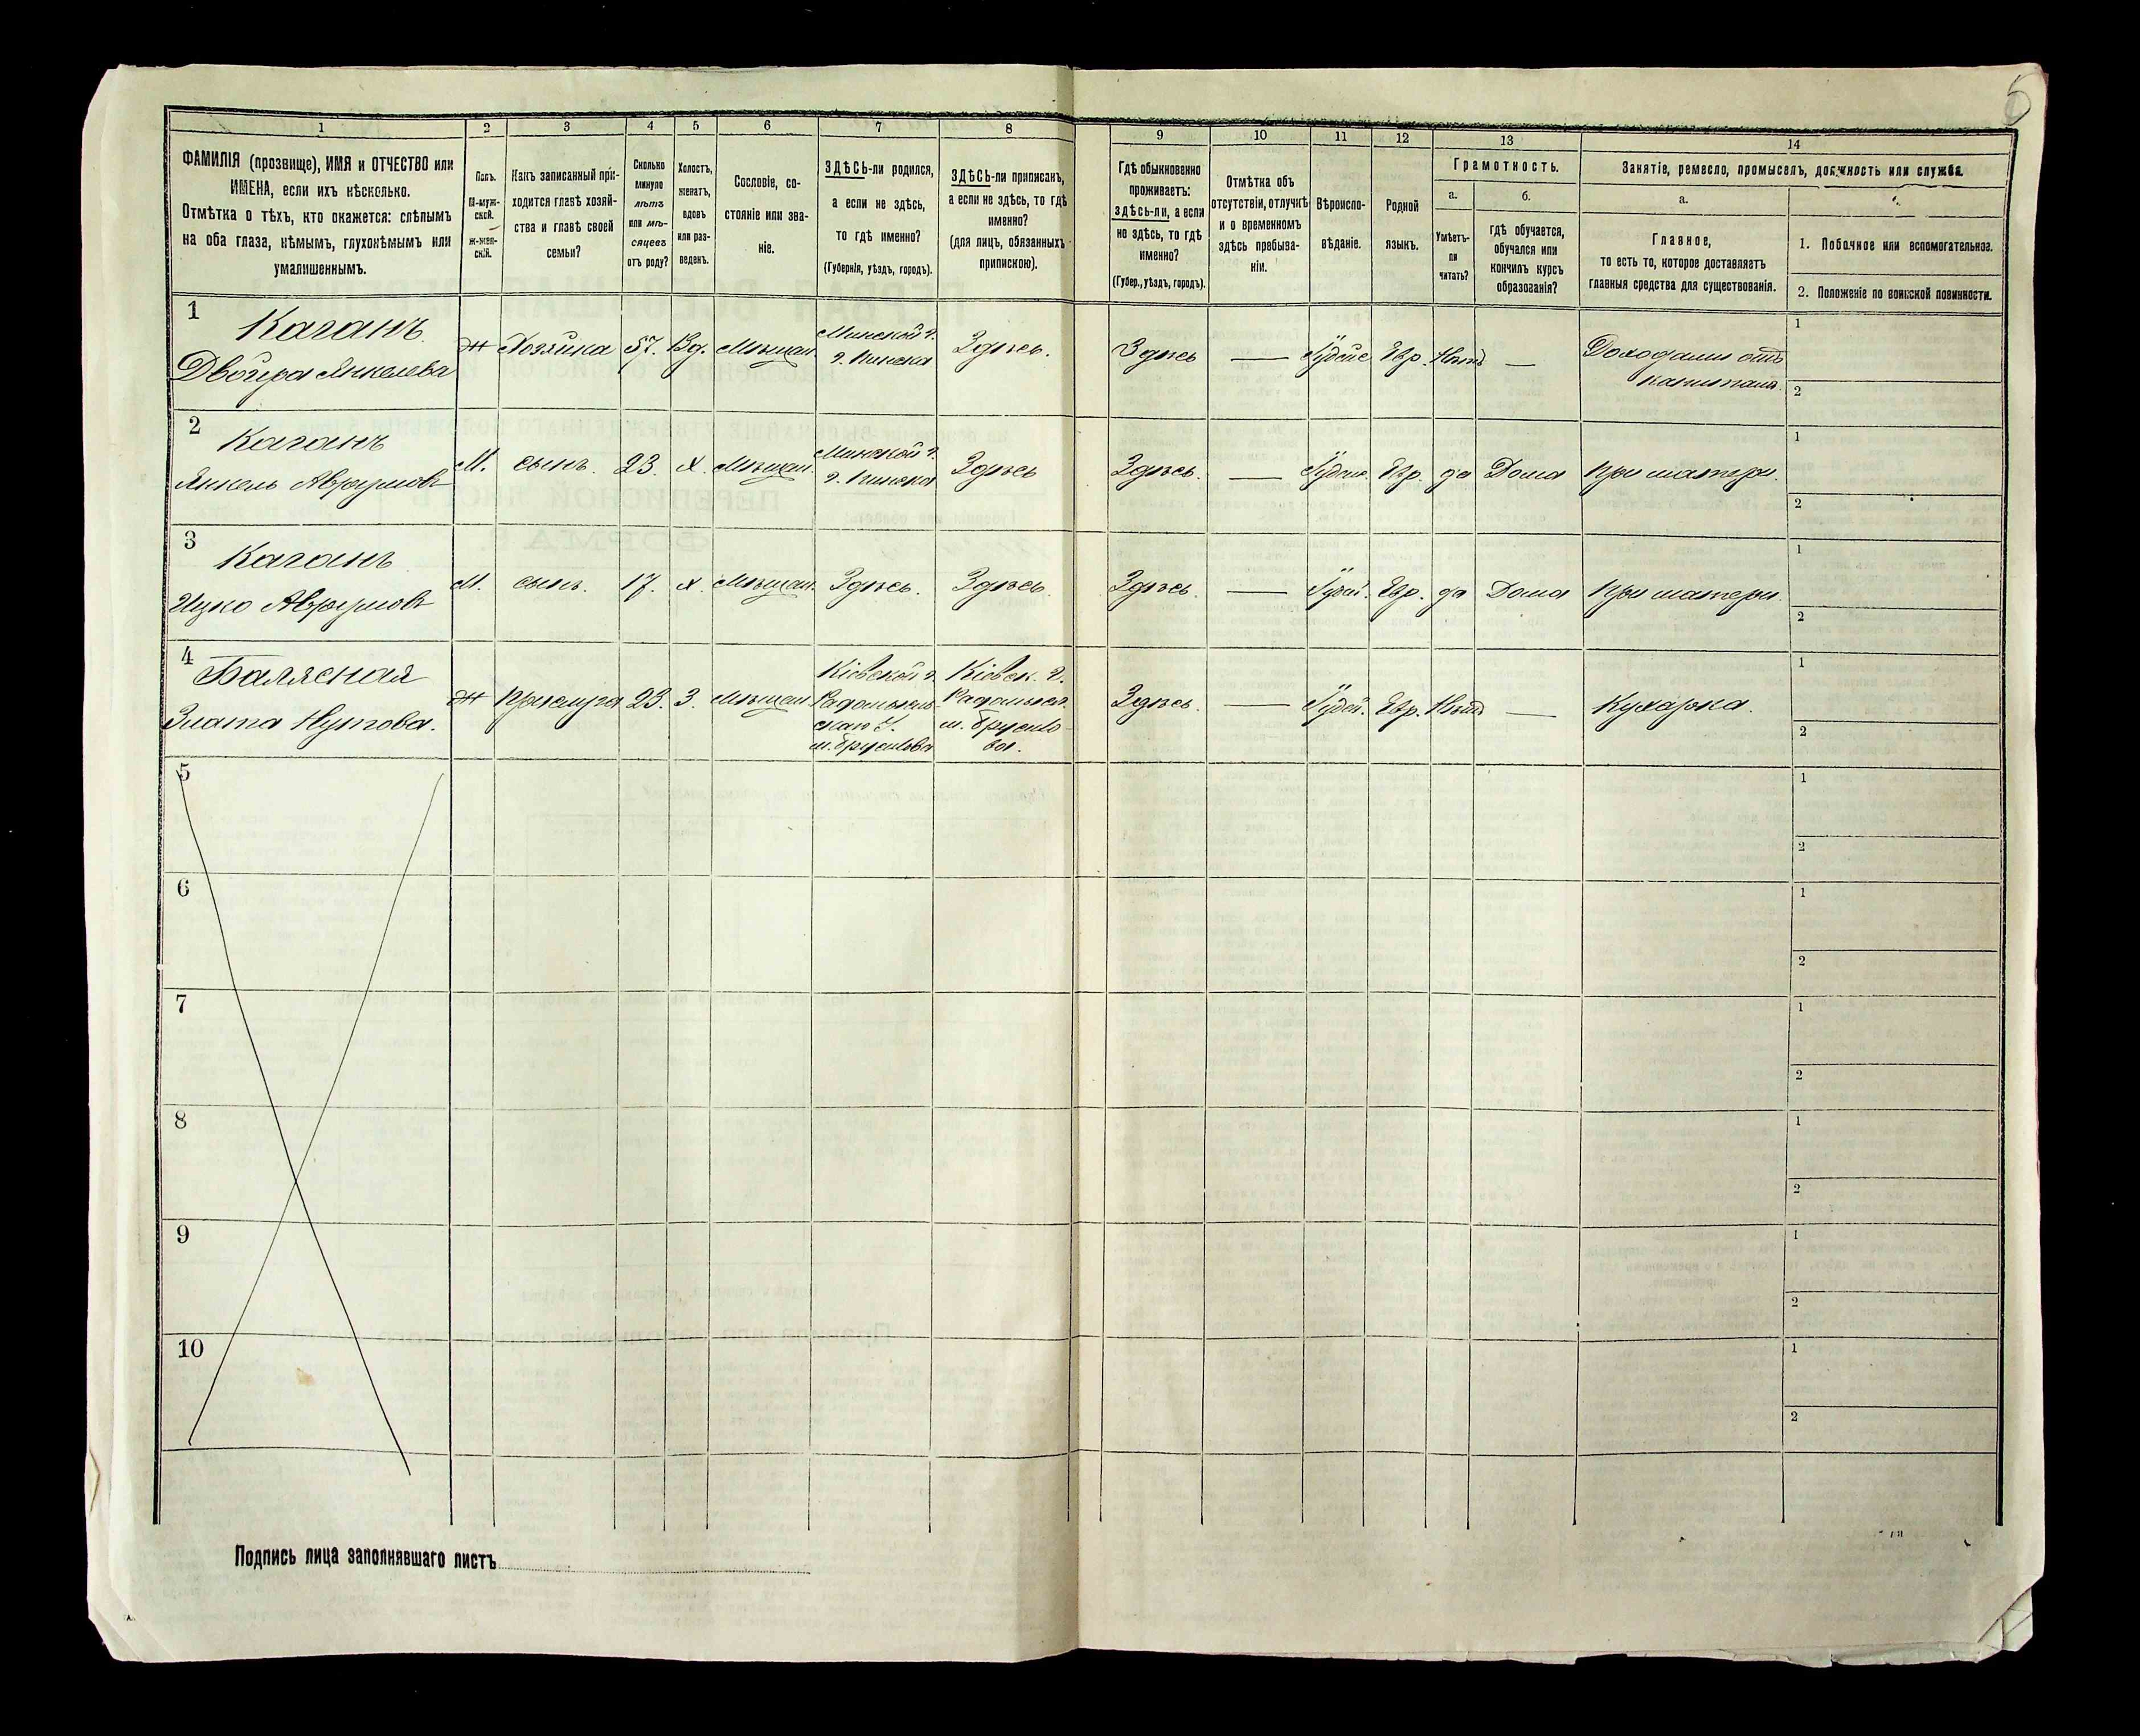 5
1 2 3 4 5 6 7 8 9 10 11 12 13 14
ФАМИЛІЯ (прозвище), ИМЯ и ОТЧЕСТВО или
ИМЕНА, если ихъ нѣсколько.
Отмѣтка о тѣхъ, кто окажется: слѣпымъ
на оба глаза, нѣмымъ, глухонѣмымъ или
умалишеннымъ.
Полъ.
М-муж-
ской.
Ж-жен-
скій.
Какъ записанный при-
ходится главѣ хозяй-
ства и главѣ своей
семьи?
Сколько
минуло
лѣтъ
или мѣ-
сяцевъ
отъ роду?
Холостъ,
женатъ,
вдовъ
или раз-
веденъ.
Сословіе, со-
стояніе или зва-
ніе.
ЗДѢСЬ-ли родился,
а если не здѣсь,
то гдѣ именно?
(Губернія, уѣздъ, городъ).
ЗДѢСЬ-ли приписанъ,
а если не здѣсь, то гдѣ
именно?
(для лицъ, обязанныхъ
припискою).
Гдѣ обыкновенно
проживаетъ:
здѣсь-ли, а если
не здѣсь, то гдѣ
именно?
(Губер., уѣздъ, городъ).
Отмѣтка объ
отсутствіи, отлучкѣ
и о временномъ
здѣсь пребыва-
ніи.
Вѣроиспо-
вѣданіе.
Родной
языкъ.
Грамотность.
а.
Умѣетъ-
ли
читать?
б.
гдѣ обучается,
обучался или
кончилъ курсъ
образованія?
Занятіе, ремесло, промыселъ, должность или служба.
а.
Главное,
то есть то, которое доставляетъ
главныя средства для существованія.
1. Побочное или вспомогательное.
2. Положеніе по воинской повинности.
1
Каганъ
Двойра Янкелева
Ж
Хозяйка
57.
Вд.
Мѣщан.
Минской г.
г. Пинска
Здѣсь.
Здѣсь
—
Іудейс
Евр.
Нѣтъ
—
Доходами отъ
капитала.
1
2
2
Каганъ
Янкель Аврумовъ
М.
сынъ.
23.
х.
Мѣщан.
Минской г.
г. Пинска
Здѣсь
Здѣсь.
—
Іудейс.
Евр.
да
Дома
При матери.
1
2
3
Каганъ
Ицко Аврумовъ
М.
сынъ.
17.
х.
Мѣщан.
Здѣсь.
Здѣсь.
Здѣсь.
—
Іудей.
Евр.
да
Дома
При матери.
1
2
4
Балясная
Злата Нутова.
Ж
Прислуга
23.
З.
Мѣщан.
Кіевской г.
Радомысль-
скаго У.
м. Брусилова
Кіевск. г.
Радомысл.
м. Брусило-
ва.
Здѣсь.
—
Іудей.
Евр.
Нѣтъ
—
Кухарка.
1
2
5
1
2
6
1
2
7
1
2
8
1
2
9
1
2
10
1
2
Подпись лица заполнявшаго листъ